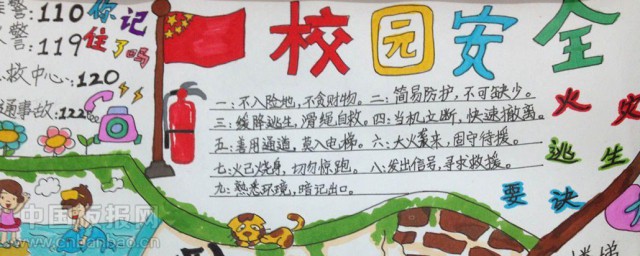 警:110
警:119
救中心:120
通事故:122
你记
住了吗
校园安全
一:不入险地,不贪财物。二:简易防护,不可缺少。
三:缓降逃生,滑绳自救。四:当机立断,快速撤离。
五:善用通道,莫入电梯。六:大火袭来,固守待援。
七:火已烧身,切勿惊跑。八:发出信号,寻求救援。
九:熟悉环境,暗记出口。
火
逃生
要诀
中国板报网
www.cnbanbao.cn
楼梯